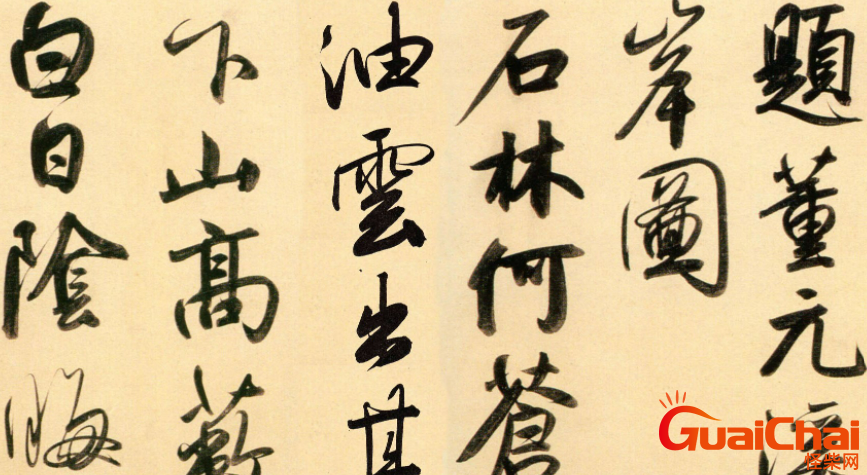 題董元
岸圖
石林何蒼
油雲出其
下山高蔽
白日陰晦
GuaiChai
怪柴网